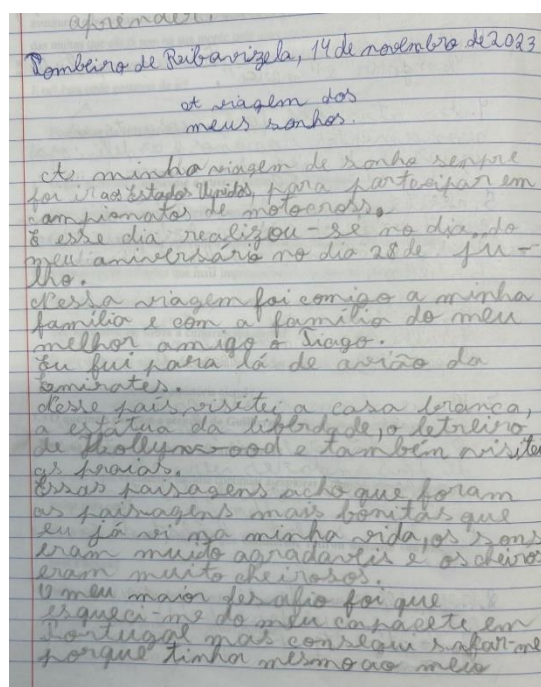 aprender.
Pombeiro de Ribavizela, 14 de novembro de 2023
A viagem dos
meus sonhos.
A minha viagem de sonho sempre
foi ir aos Estados Unidos, para partcipar em
campionatos de motocross.
E esse dia realizou-se no dia do
meu aniversário no dia 28 de ju-
lho.
Nessa viagem foi comigo a minha
família e com a família do meu
melhor amigo o Tiago.
Eu fui para lá de avião da
Emirates.
Nesse país visitei a casa branca,
a estátua da liberdade, o letreiro
de Hollywood e também visitei
as praias.
Essas paisagens acho que foram
as paisagens mais bonitas que
eu já vi na minha vida, os sons
eram muito agradaveis e os cheiros
eram muito cheirosos.
O meu maior desafio foi que
esqueci-me do meu capacete em
Portugal mas consegui safar-me
porque tinha mesmo ao meu